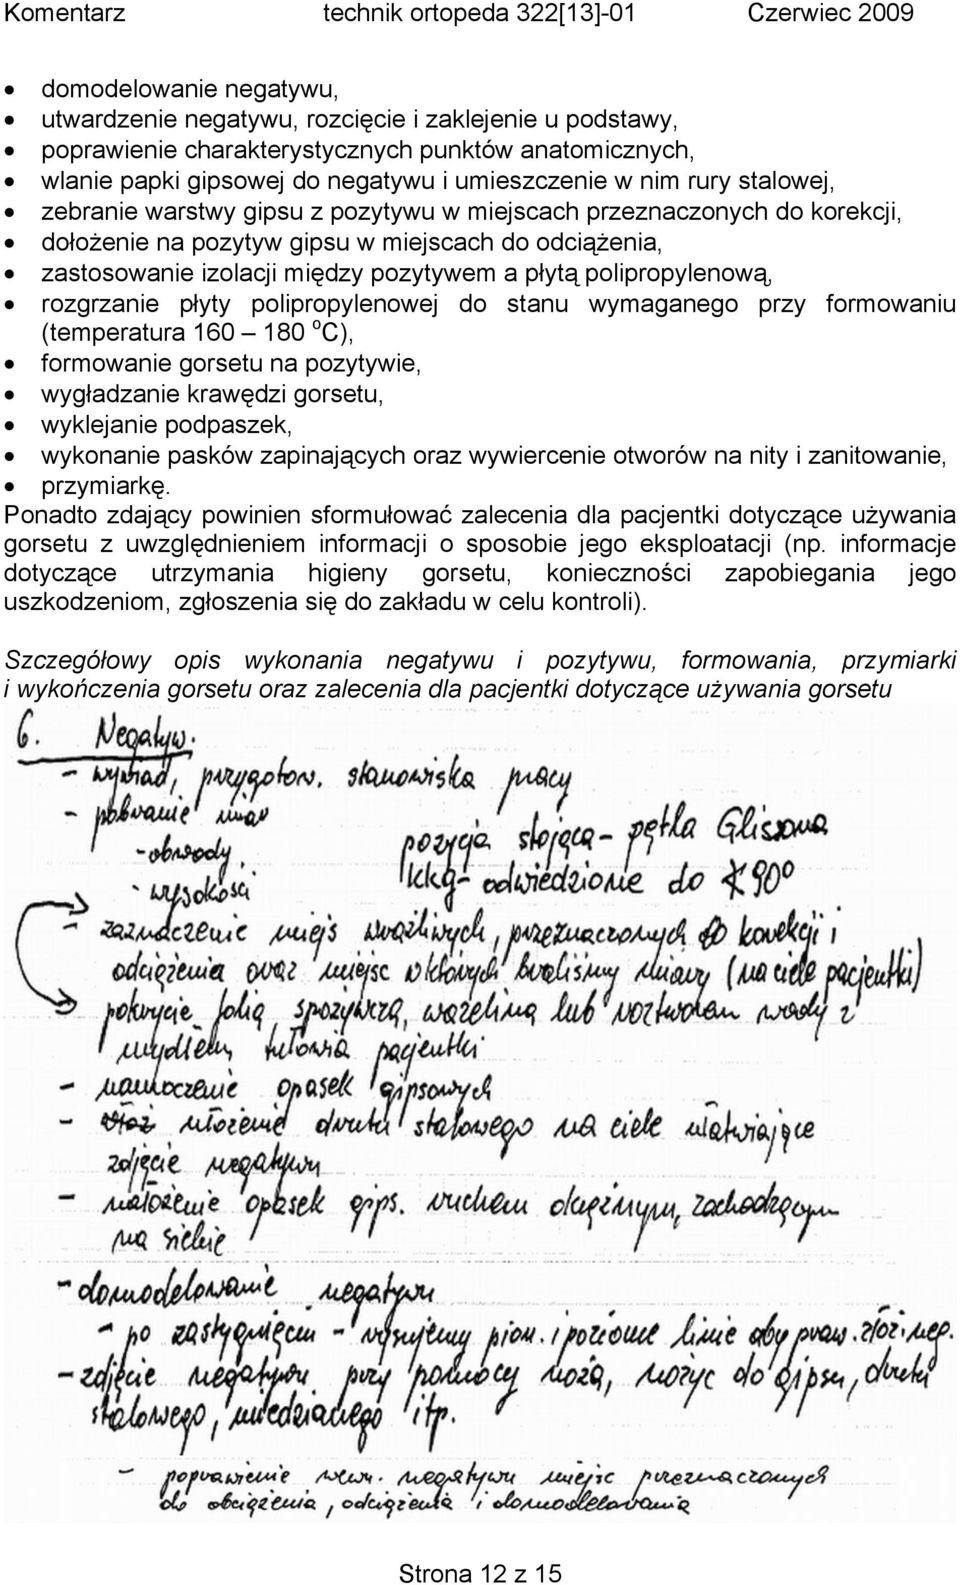 Komentarz technik ortopeda 322[13]-01 Czerwiec 2009
• domodelowanie negatywu,
• utwardzenie negatywu, rozcięcie i zaklejenie u podstawy,
• poprawienie charakterystycznych punktów anatomicznych,
• wlanie papki gipsowej do negatywu i umieszczenie w nim rury stalowej,
• zebranie warstwy gipsu z pozytywu w miejscach przeznaczonych do korekcji,
• dołożenie na pozytyw gipsu w miejscach do odciążenia,
• zastosowanie izolacji między pozytywem a płytą polipropylenową,
• rozgrzanie płyty polipropylenowej do stanu wymaganego przy formowaniu
(temperatura 160 – 180 °C),
• formowanie gorsetu na pozytywie,
• wygładzanie krawędzi gorsetu,
• wyklejanie podpaszek,
• wykonanie pasków zapinających oraz wywiercenie otworów na nity i zanitowanie,
• przymiarkę.
Ponadto zdający powinien sformułować zalecenia dla pacjentki dotyczące używania
gorsetu z uwzględnieniem informacji o sposobie jego eksploatacji (np. informacje
dotyczące utrzymania higieny gorsetu, konieczności zapobiegania jego
uszkodzeniom, zgłoszenia się do zakładu w celu kontroli).
Szczegółowy opis wykonania negatywu i pozytywu, formowania, przymiarki
i wykończenia gorsetu oraz zalecenia dla pacjentki dotyczące używania gorsetu
6. Negatyw.
- wywiad, przygotow. stanowiska pracy
- pobranie miar
- obwody,
- wysokości
pozycja stojąca - pętla Glissona
kkg - odwiedzione do ∢ 90°
- zaznaczenie miejs wrażliwych, przeznaczonych do korekcji i
odciężenia oraz miejsc w których braliśmy miary (na ciele pacjentki)
pokrycie folią spożywczą, wazeliną lub roztworem wody z
mydłem, tułowia pacjentki
- namoczenie opasek gipsowych
- ułożenie drutu stalowego na ciele ułatwiające
zdjęcie negatywu
- nałożenie opasek gips. ruchem ciężnym, zachodzącym
na siebie
- domodelowanie negatywu
- po zastygnięciu - rysujemy pion. i poziome linie aby praw. złoż. neg.
- zdjęcie negatywu przy pomocy noża, nożyc do gipsu, drutu
stalowego, miedzianego itp.
- poprawienie wewn. negatywu miejsc przeznaczonych
do obciężenia, odciężenia i domodelowania
Strona 12 z 15